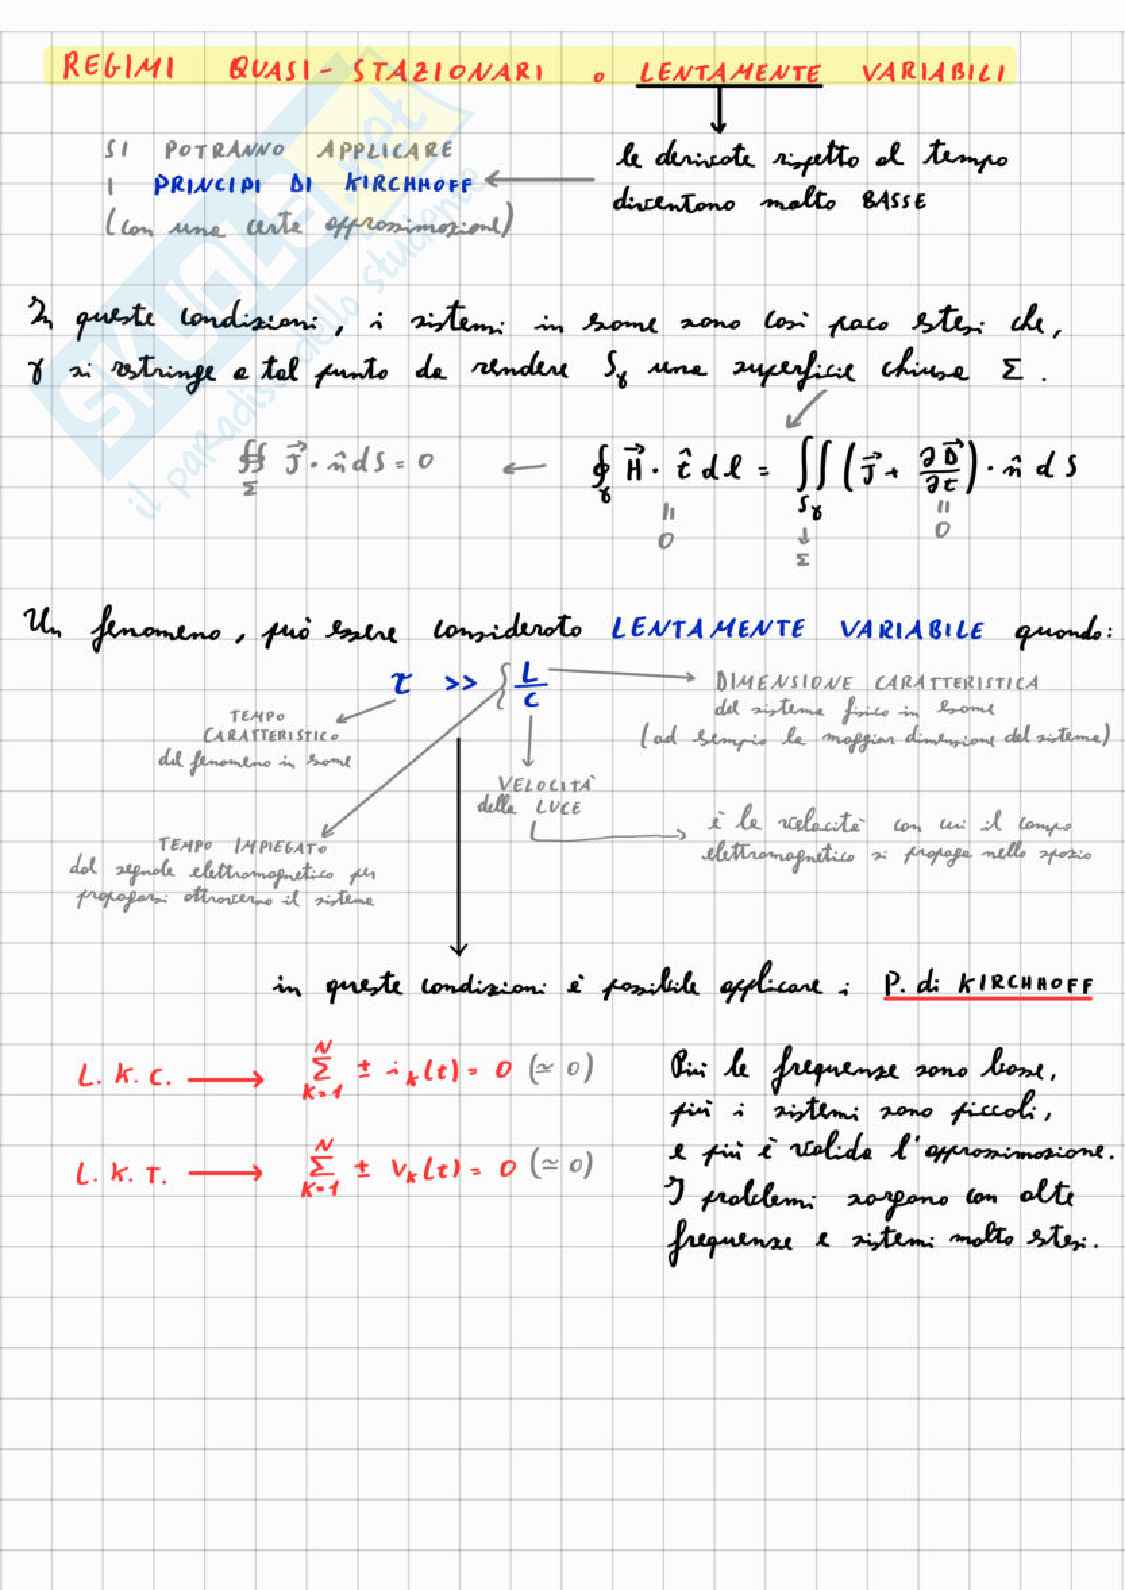 REGIMI QUASI-STAZIONARI o LENTAMENTE VARIABILI
SI POTRANNO APPLICARE
I PRINCIPI DI KIRCHHOFF
(con una certa approssimazione)
le derivate rispetto al tempo
diventano molto BASSE
In queste condizioni, i sistemi in esame sono così poco estesi che,
γ si restringe a tal punto da rendere Sγ una superficie chiusa Σ.
∯_Σ J⃗ · n̂ dS = 0 ← ∮_γ H⃗ · t̂ dl = ∬_Sγ (J⃗ + ∂D⃗/∂t) · n̂ dS
= 0
↓ Σ
= 0
Un fenomeno, può essere considerato LENTAMENTE VARIABILE quando:
τ >> { L/c
TEMPO
CARATTERISTICO
del fenomeno in esame
DIMENSIONE CARATTERISTICA
del sistema fisico in esame
(ad esempio la maggior dimensione del sistema)
VELOCITÀ
della LUCE
è la velocità con cui il campo
elettromagnetico si propaga nello spazio
TEMPO IMPIEGATO
dal segnale elettromagnetico per
propagarsi attraverso il sistema
in queste condizioni è possibile applicare i P. di KIRCHHOFF
L. K. C. → Σ_{K=1}^{N} ± i_k(t) = 0 (≃ 0)
L. K. T. → Σ_{K=1}^{N} ± v_k(t) = 0 (≃ 0)
Più le frequenze sono basse,
più i sistemi sono piccoli,
e più è valida l'approssimazione.
I problemi sorgono con alte
frequenze e sistemi molto estesi.
SKUOLA.net
il paradiso dello studente